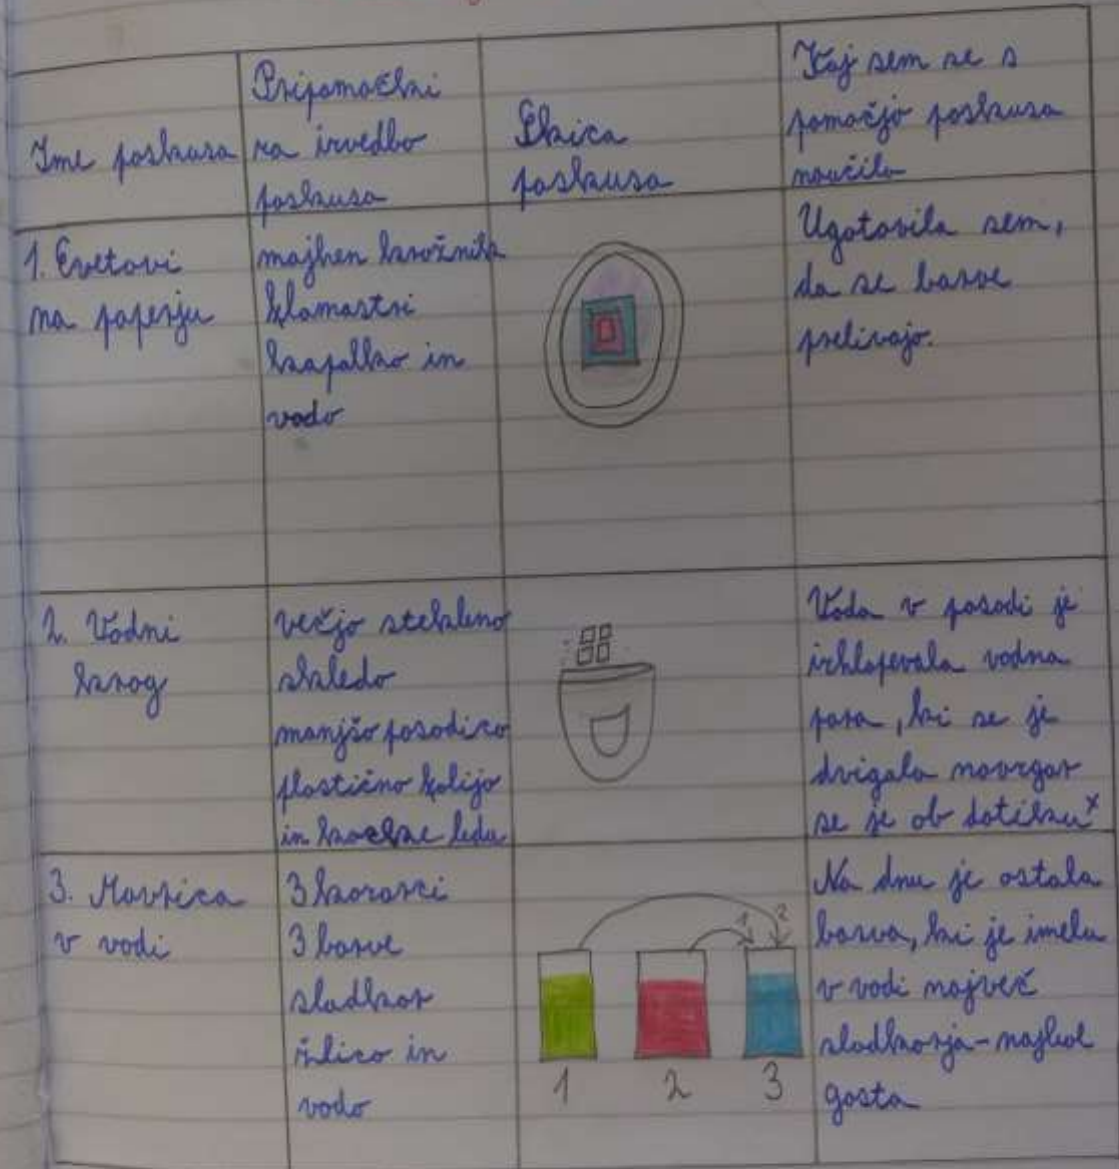 Ime poskusa
Pripomočki
za izvedbo
poskusa
Skica
poskusa
Kaj sem se s
pomočjo poskusa
naučila
1. Cvetovi
na papirju
majhen krožnik
flomastri
kapalko in
vodo
Ugotovila sem,
da se barve
prelivajo.
2. Vodni
krog
večjo stekleno
skledo
manjšo posodico
plastično folijo
in kocke ledu
Voda v posodi je
izhlapevala vodna
para, ki se je
dvigala navzgor
se je ob dotiku x
3. Mavrica
v vodi
3 kozarci
3 barve
sladkor
žlico in
vodo
1 2
1 2 3
Na dnu je ostala
barva, ki je imela
v vodi največ
sladkorja - najbol
gosta